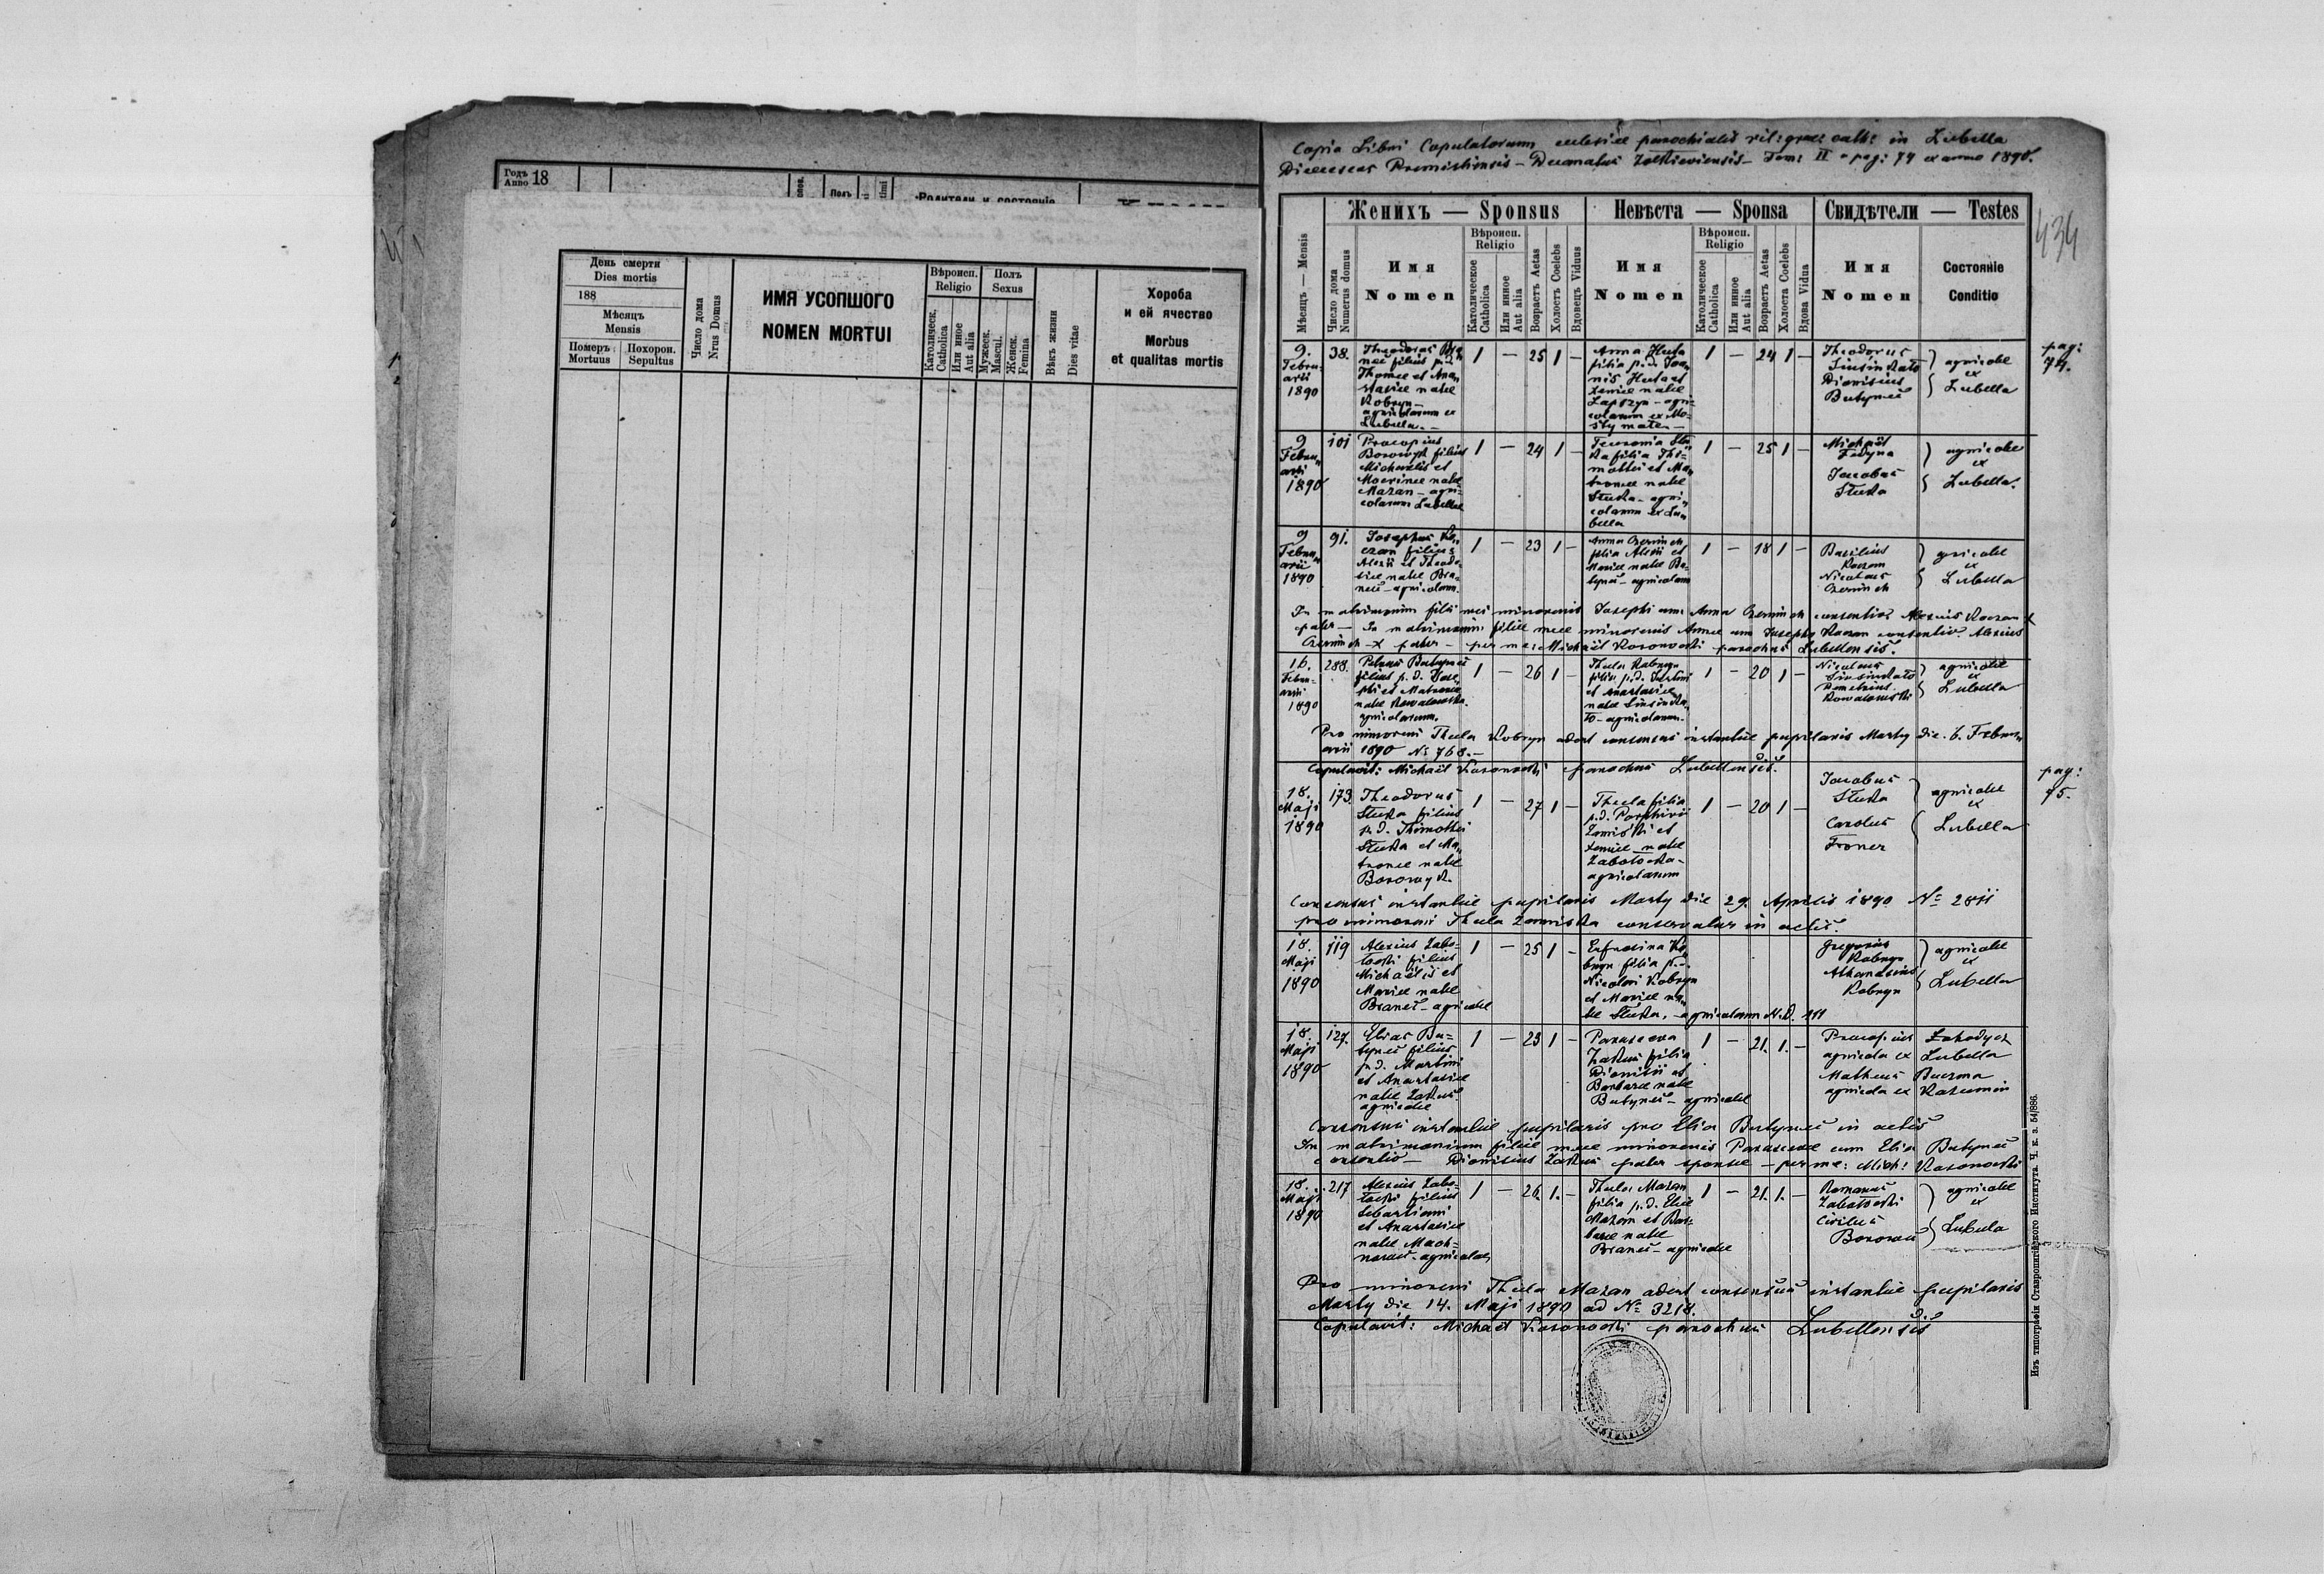 Годъ
Anno 18
Полъ
Родители и состояніе
День смерти
Dies mortis
188
Мѣсяцъ
Mensis
Померъ
Mortuus
Похорон.
Sepultus
Число дома
Nrus Domus
ИМЯ УСОПШОГО
NOMEN MORTUI
Вѣроисп.
Religio
Католическ.
Catholica
Или иное
Aut alia
Полъ
Sexus
Мужеск.
Mascul.
Женск.
Femina
Вѣкъ жизни
Dies vitae
Хороба
и ей ячество
Morbus
et qualitas mortis
Copia Libri Copulatorum ecclesiae parochialis rit: graec: cath: in Lubella
Dioeceseos Premisliensis – Decanatus Zolkieviensis – Tom: II – pag: 74 ex anno 1890.
434
Женихъ — Sponsus
Невѣста — Sponsa
Свидѣтели — Testes
Мѣсяцъ — Mensis
Число дома
Numerus domus
Имя
Nomen
Вѣроисп.
Religio
Католическое
Catholica
Или инное
Aut alia
Возрастъ Aetas
Холостъ Coelebs
Вдовецъ Viduus
Имя
Nomen
Вѣроисп.
Religio
Католическое
Catholica
Или инное
Aut alia
Возрастъ Aetas
Холоста Coelebs
Вдова Vidua
Имя
Nomen
Состояніе
Conditio
pag:
74.
9.
Febru-
arii
1890
38.
Theodorus Bra
neć filius p. d.
Thomae et Ana
stasiae natae
Kobryn –
agricolarum ex
Lubella. –
1 – 25 1 –
Anna Huta
filia p. d. Joan
nis Huta et
Xeniae natae
Łapszyn – agri-
colarum ex Mo-
sty małe –
1 – 24 1 –
Theodorus
Dionisius
Butyneć
agricolae
ex
Lubella
9
Febru
arii
1890
101
Procopius
Borowyk filius
Michaelis et
natae
Mazan – agri-
colarum Lubellae
1 – 24 1 –
Słu
ka filia Thi-
mothei et Ma
tronae natae
Słuka – agri
colarum ex Lu
bella
1 – 25 1 –
Michaël
Fedyna
Jacobus
Słuka
agricolae
ex
Lubella.
9
Febru
arii
1890
91.
Josephus Ko
czan filius
Alexii et Theodo-
siae natae Bra-
neć – agricolarum.
1 – 23 1 –
Anna
filia Alexii et
Mariae natae Bu-
tyneć – agricolarum
1 – 18 1 –
Basilius
Koczan
Nicolaus
agricolae
ex
Lubella
In matrimonium filii mei minorennis Josephi cum Anna consentio Alexius Koczan
pater – In matrimonium filiae meae minorennis Annae cum Josepho Koczan consentio Alexius
x pater – per me: Michaël parochus Lubellensis.
16.
Febru-
arii
1890
288.
Petrus Butyneć
filius p. d. Jose
phi et Matronae
natae Kowalowska
agricolarum.
1 – 26 1 –
Thecla Kobryn
filia p. d. Justini
et Anastasiae
natae
agricolarum.
1 – 20 1 –
Nicolaus
Demetrius
Kowalowski
agricolae
ex
Lubella
Pro minorenni Thecla Kobryn adest consensus instantiae pupilaris Mosty die. 6. Febru
arii 1890 № 768. –
Copulavit: Michaël parochus Lubellensis.
pag:
75.
18.
Maji
1890
173.
Theodorus
Słuka filius
p. d. Thimothei
Słuka et Ma
tronae natae
Borowyk.
1 – 27 1 –
Thecla filia
p. d. Porphirii
et
Xeniae natae
Zabołocka –
agricolarum
1 – 20 1 –
Jacobus
Słuka
Carolus
Froner
agricolae
ex
Lubella
Consensus instantiae pupilaris Mosty die 29. Aprilis 1890 № 2811
pro minorenni Thecla conservatur in actis.
18.
Maji
1890
119
Alexius Zabo-
łocki filius
Michaëlis et
Mariae natae
Braneć – agricolae
1 – 25 1 –
Eufrosina Ko
bryn filia p. d.
Nicolai Kobryn
et Mariae na
tae Słuka, – agricolarum N. D. 111
Gregorius
Kobryn
Athanasius
Kobryn
agricolae
ex
Lubella
18.
Maji
1890
127.
Elias Bu-
tyneć filius
p. d. Martini
et Anastasiae
natae
agricolae
1 – 23 1 –
Parasceva
filia
Dionisii et
Barbarae natae
Butyneć – agricolae
1 – 21. 1. –
Procopius
agricola ex Lubella
Matheus Buczma
agricola ex
Consensus instantiae pupilaris pro Elia Butyneć in actis
In matrimonium filiae meae minorennis Parascevae cum Elia Butyneć
consentio – Dionisius pater sponsae – per me: Mich:
18.
Maji
1890
217
Alexius Zabo-
łocki filius
Sebastiani
et Anastasiae
natae Mach-
agricolae
1 – 26 1. –
Thecla Mazan
filia p. d. Eliae
Mazan et Bar-
barae natae
Braneć – agricolae
1 – 21. 1. –
Romanus
Zabołocki
Cirillus
agricolae
ex
Lubella
Pro minorenni Thecla Mazan adest consensus instantiae pupilaris
Mosty die 14. Maji 1890 ad № 3218.
Copulavit: Michaël parochus Lubellensis
Изъ типографіи Ставропигійского Института. Ч. к. з. 54/886.